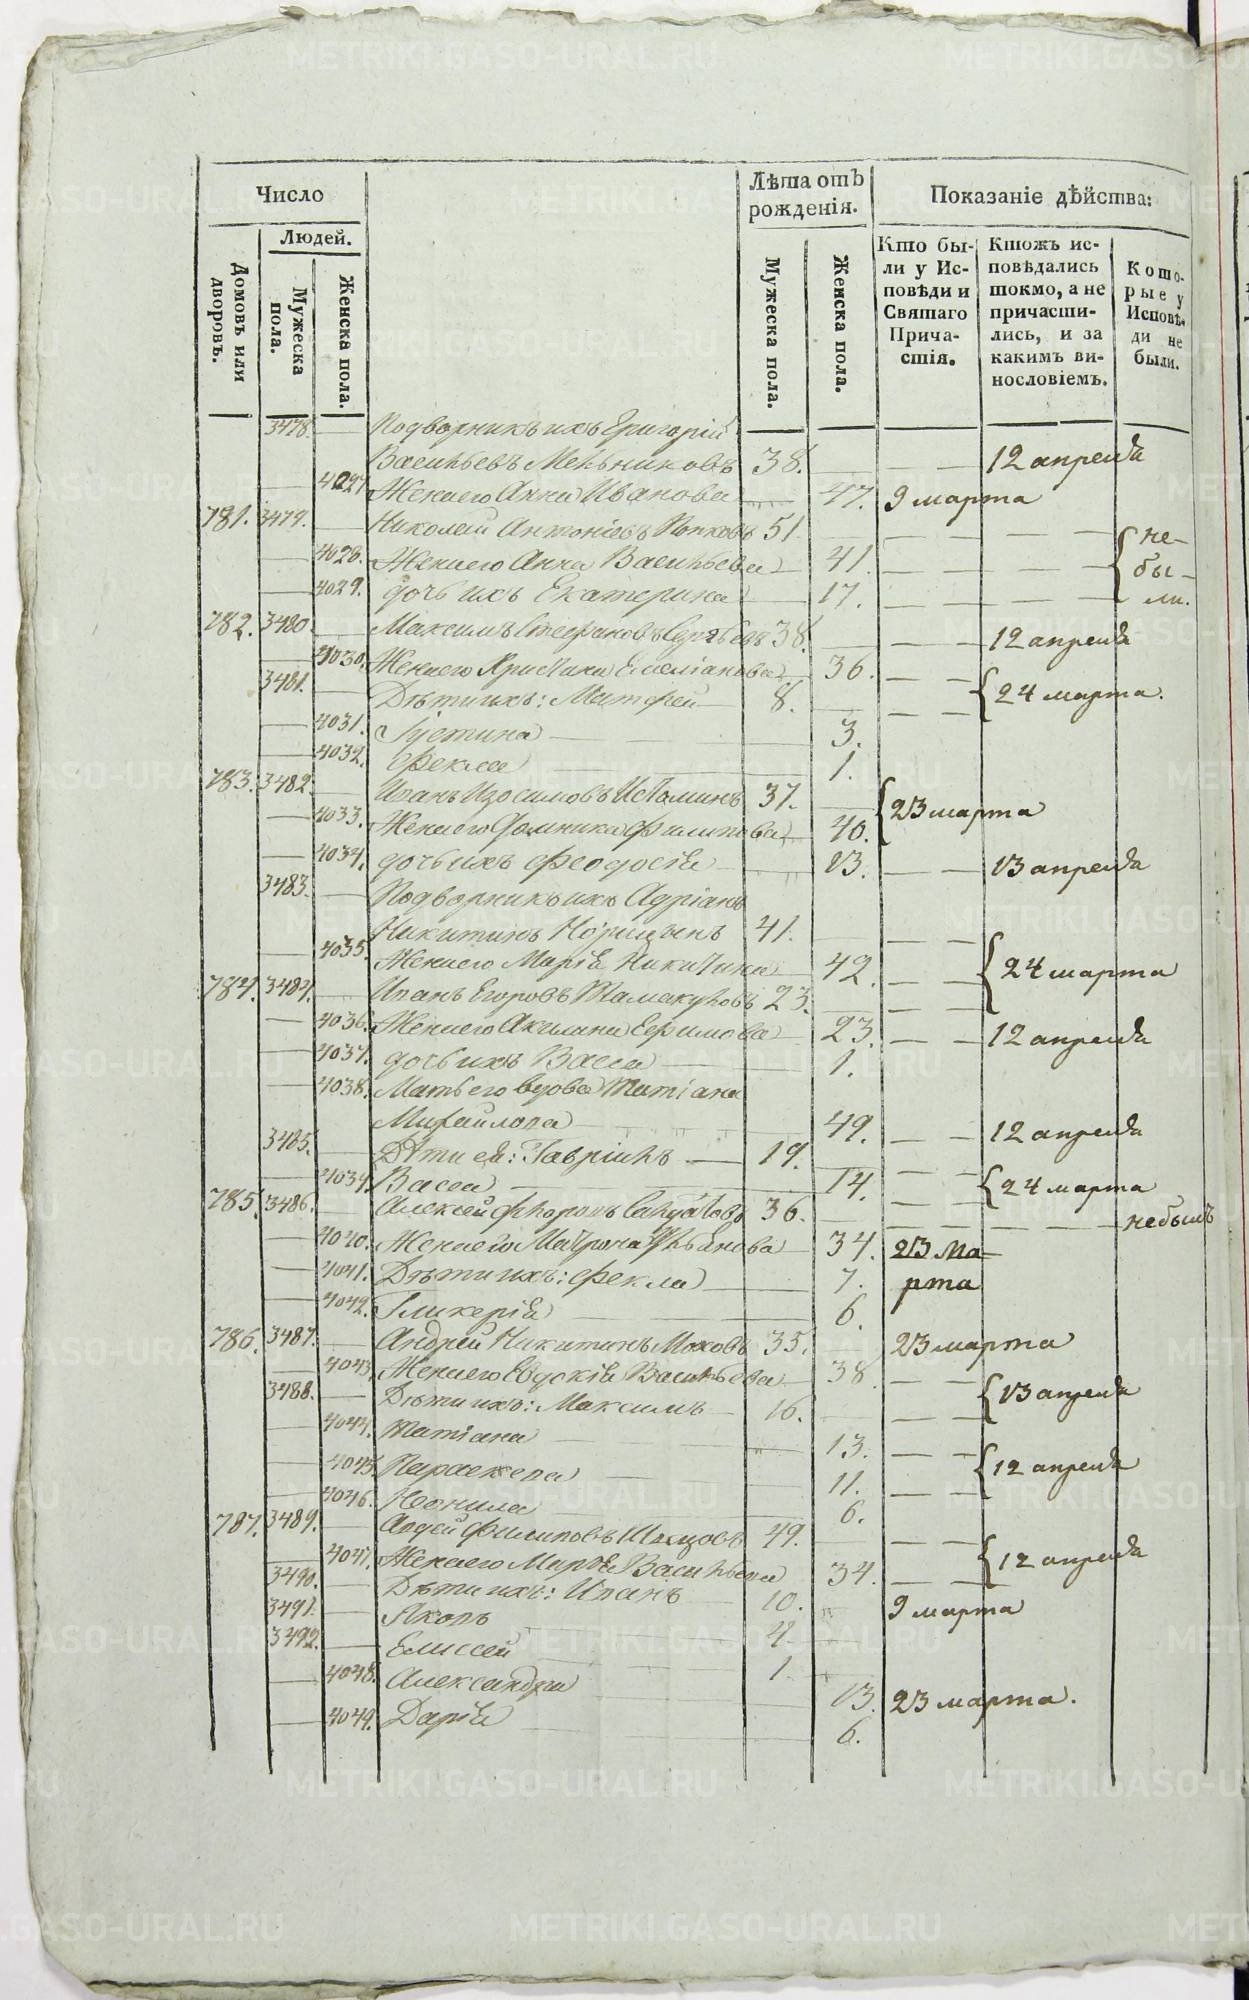 Число
Людей.
Домовъ или дворовъ.
Мужеска пола.
Женска пола.
Лѣта отъ рожденія.
Мужеска пола.
Женска пола.
Показаніе дѣйства:
Кто бы-
ли у Ис-
повѣди и
Святаго
Прича-
стія.
Ктожъ ис-
повѣдались
токмо, а не
причасти-
лись, и за
какимъ ви-
нословіемъ.
Кото-
рые у
Исповѣ-
ди не
были.
3478. Подворникъ ихъ Григорій
Васильевъ Мельниковъ 38. 12 апреля
4027. Жена его Анна Иванова 47. 9 марта
781. 3479. Николай Антоніевъ Попковъ 51. не-
4028. Жена его Анна Васильева 41. бы-
4029. дочь ихъ Екатерина 17. ли.
782. 3480. Максимъ Стефановъ 38. 12 апреля
4030. Жена его Христина Емеліанова 36.
3481. Дѣти ихъ: Матфей 8. 24 марта.
4031. Іустина 3.
4032. Фекла 1.
783. 3482. Иванъ Изосимовъ Истоминъ 37. 23 марта
4033. Жена его Домника Филипова 40.
4034. дочь ихъ Феодосія 13. 13 апреля
3483. Подворникъ ихъ Адріанъ
Никитинъ 41.
4035. Жена его Марія Никитина 42. 24 марта
784. 3484. Иванъ Егоровъ Тамакуловъ 23.
4036. Жена его Акилина Ефимова 23. 12 апреля
4037. дочь ихъ Васса 1.
4038. Мать его вдова Татіана
Михайлова 49. 12 апреля
3485. Дѣти ея: Гавріилъ 19.
4039. Васса 14. 24 марта
785. 3486. Алексей Флоровъ 36. небылъ
4040. Жена его Матрона 34. 23 Ма-
4041. Дѣти ихъ: Фекла 7. рта
4042. Гликерія 6.
786. 3487. Андрей Никитинъ Моховъ 35. 23 марта
4043. Жена его Евдокія Васильева 38.
3488. Дѣти ихъ: Максимъ 16. 13 апреля
4044. Татіана 13.
4045. Параскева 11. 12 апреля
4046. Неонила 6.
787. 3489. Авдей Филиповъ 49.
4047. Жена его Марѳа Васильева 34. 12 апреля
3490. Дѣти ихъ: Иванъ 10. 9 марта
3491. Яковъ 4.
3492. Елиссей 1.
4048. Александра 13. 23 марта.
4049. Дарія 6.
METRIKI.GASO-URAL.RU